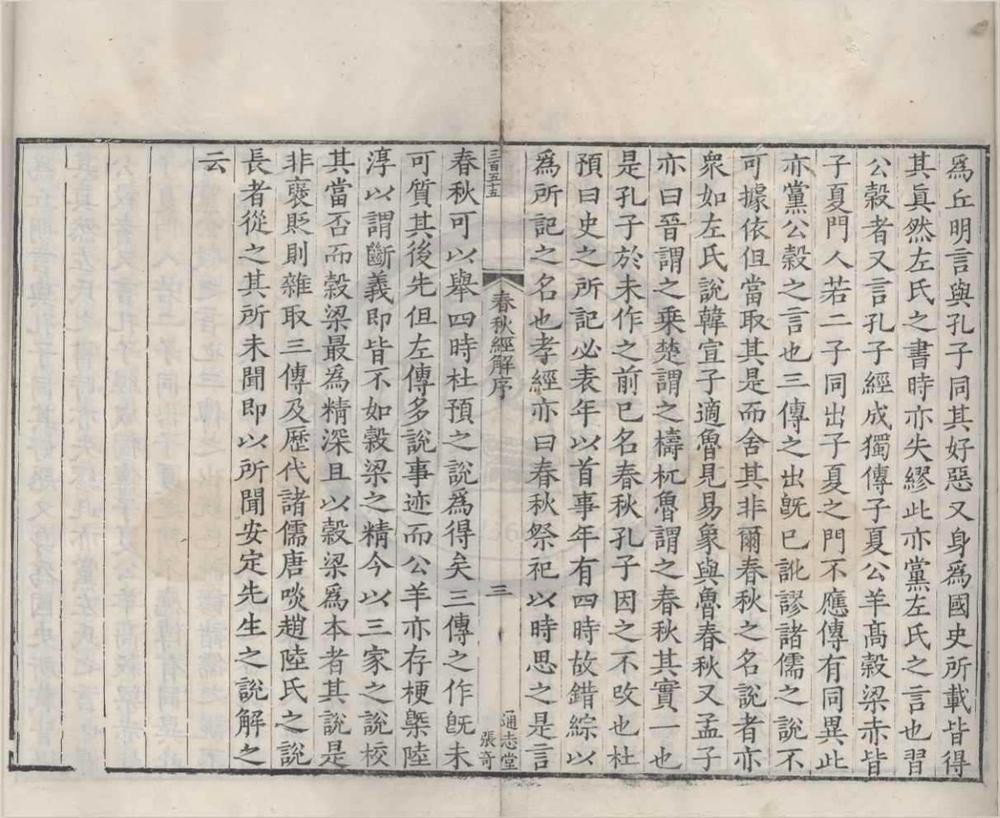 爲丘明言與孔子同其好惡又身爲國史所載皆得
其眞然左氏之書時亦失繆此亦黨左氏之言也習
公穀者又言孔子經成獨傳子夏公羊髙穀梁赤皆
子夏門人若二子同出子夏之門不應傳有同異此
亦黨公穀之言也三傳之出旣已訛謬諸儒之說不
可據依但當取其是而舍其非爾春秋之名說者亦
衆如左氏說韓宣子適魯見易象與魯春秋又孟子
亦曰晉謂之乗楚謂之檮杌魯謂之春秋其實一也
是孔子於未作之前已名春秋孔子因之不攺也杜
預曰史之所記必表年以首事年有四時故錯綜以
爲所記之名也孝經亦曰春秋祭祀以時思之是言
三百五十五
春秋經解序
三
通志堂
張奇
春秋可以舉四時杜預之說爲得矣三傳之作旣未
可質其後先但左傳多說事迹而公羊亦存梗槩陸
淳以謂斷義即皆不如穀梁之精今以三家之說校
其當否而穀梁最爲精深且以穀梁爲本者其說是
非襃貶則雜取三傳及歷代諸儒唐啖趙陸氏之說
長者從之其所未聞即以所聞安定先生之說解之
云